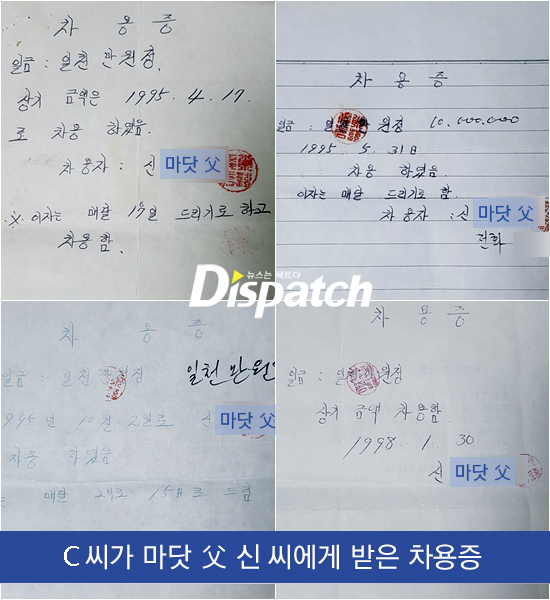 차 용 증
일금 : 일천 만원정.
상기 금액은 1995. 4. 17.
로 차용 하였음.
차용자 : 신 마닷 父
.※. 이자는 매달 17일 드리기로 하고
차용함.
차 용 증
일금 : 일천 만 원정 10.000.000
1995. 5. 31日
차용 하였음.
이자는 매달 드리기로 함.
차용자 : 신 마닷 父
전화
뉴스는 팩트다
Dispatch
차 용 증
일금 : 일천 만원정 일천 만원
1995년 10월 2일로 신 마닷 父
차용 하였음
매달 15日로 드림
차 용 증
일금 : 일천만원정
상기 금액 차용함.
1998. 1. 30
신 마닷 父
C 씨가 마닷 父 신 씨에게 받은 차용증